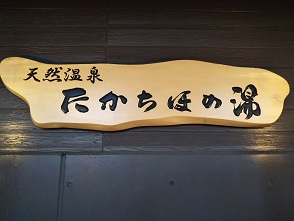 天然温泉
たかちほの湯